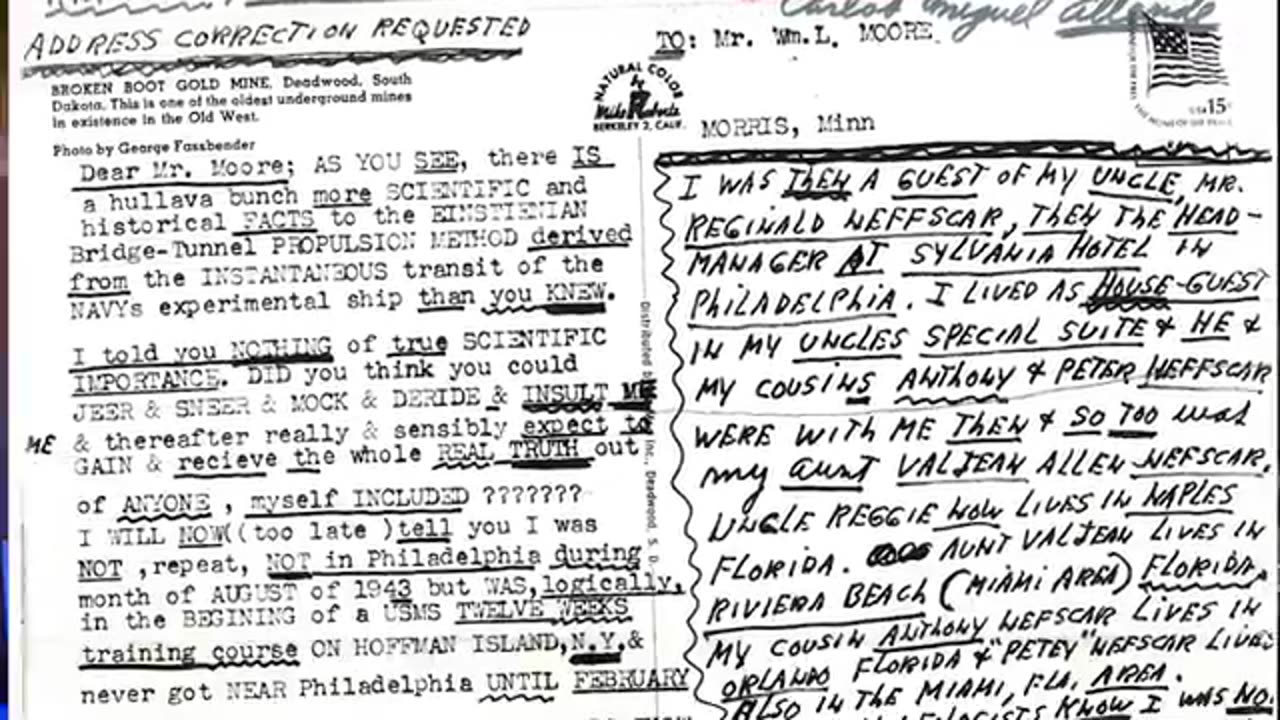 Carlos Miguel Allende
ADDRESS CORRECTION REQUESTED
TO: Mr. Wm.L. MOORE
BROKEN BOOT GOLD MINE, Deadwood, South
Dakota. This is one of the oldest underground mines
in existence in the Old West.
Photo by George Fassbender
NATURAL COLOR
by
Mike Roberts
BERKELEY 2, CALIF.
USA 15c
MORRIS, Minn
Dear Mr. Moore; AS YOU SEE, there IS
a hullava bunch more SCIENTIFIC and
historical FACTS to the EINSTIENIAN
Bridge-Tunnel PROPULSION METHOD derived
from the INSTANTANEOUS transit of the
NAVYs experimental ship than you KNEW.
I told you NOTHING of true SCIENTIFIC
IMPORTANCE. DID you think you could
JEER & SNEER & MOCK & DERIDE & INSULT ME
ME & thereafter really & sensibly expect to
GAIN & recieve the whole REAL TRUTH out
of ANYONE , myself INCLUDED ???????
I WILL NOW((too late )tell you I was
NOT ,repeat, NOT in Philadelphia during
month of AUGUST of 1943 but WAS,logically,
in the BEGINING of a USMS TWELVE WEEKS
training course ON HOFFMAN ISLAND,N.Y.&
never got NEAR Philadelphia UNTIL FEBRUARY
Inc., Deadwood, S. D.
I WAS THEN A GUEST OF MY UNCLE, MR.
REGINALD NEFFSCAR, THEN THE HEAD-
MANAGER AT SYLVANIA HOTEL IN
PHILADELPHIA. I LIVED AS HOUSE-GUEST
IN MY UNCLES SPECIAL SUITE & HE &
MY COUSINS ANTHONY & PETER NEFFSCAR
WERE WITH ME THEN & SO TOO was
my aunt VALJEAN ALLEN NEFSCAR.
UNCLE REGGIE NOW LIVES IN NAPLES
FLORIDA. AUNT VALJEAN LIVES IN
RIVIERA BEACH (MIAMI AREA) FLORIDA,
MY COUSIN ANTHONY NEFSCAR LIVES IN
ORLANDO FLORIDA & "PETEY" NEFSCAR LIVES
ALSO IN THE MIAMI, FLA. AREA.
KNOW I WAS NO